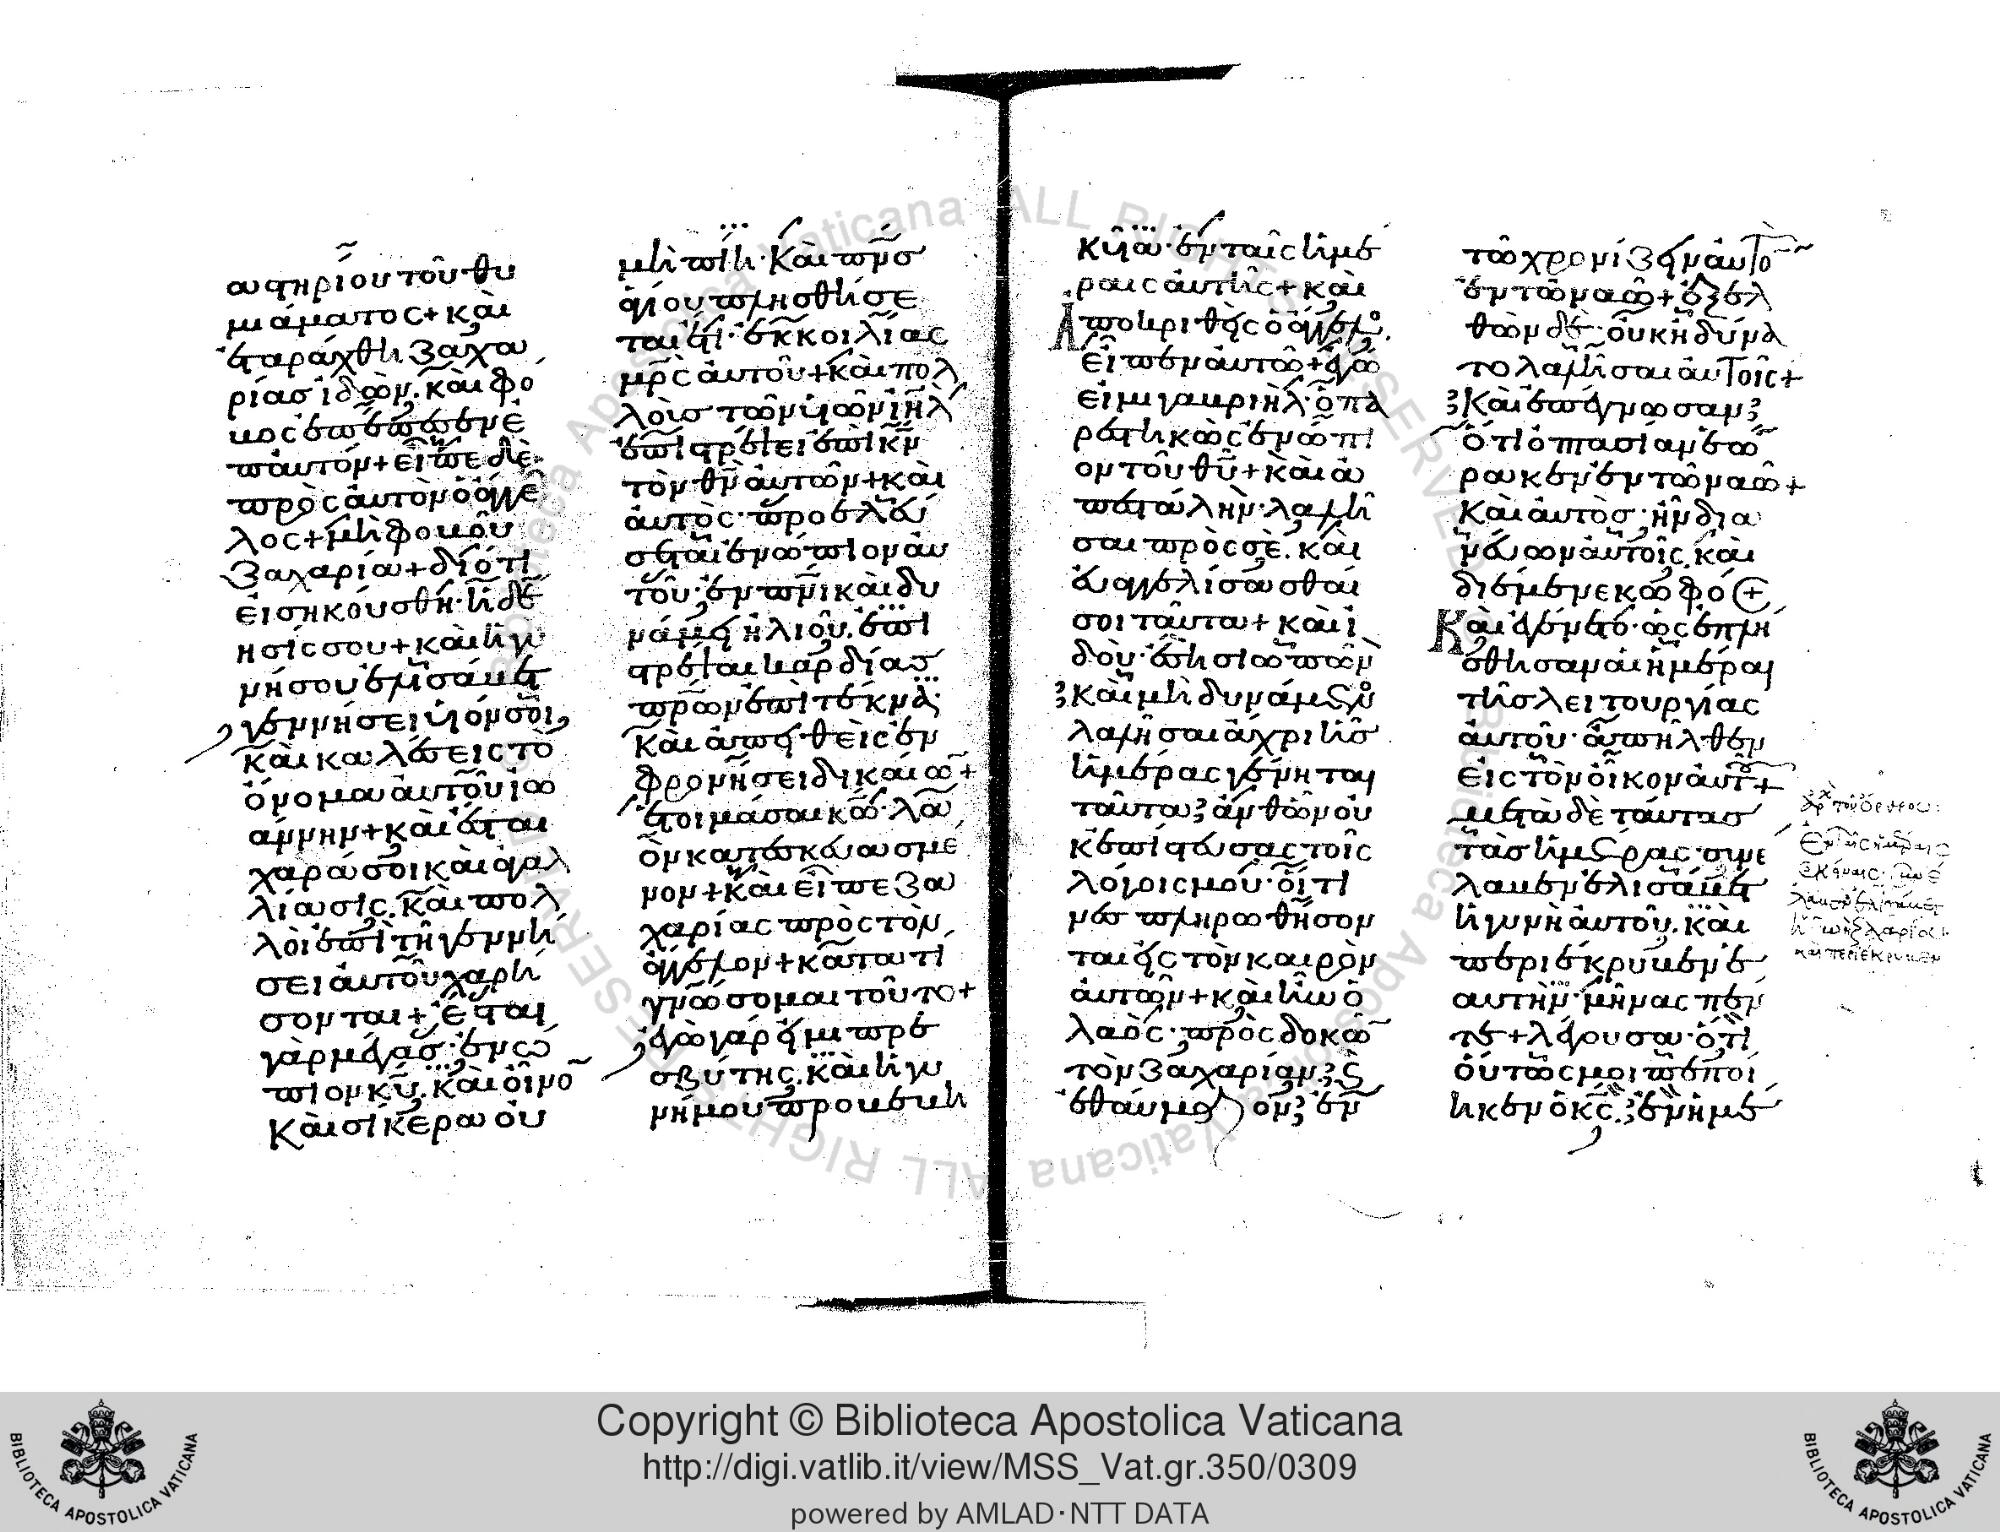 αστηρίου τοῦ θυ
μιάματος + καὶ
ἐταράχθη ζαχα
ρίας ἰδὼν. καὶ φό
βος ἐπέπεσεν ἐ
π' αὐτόν + εἶπε δὲ
πρὸς αὐτὸν ὁ ἄγγε
λος + μὴ φοβοῦ
ζαχαρία + διότι
εἰσηκούσθη ἡ δέ
ησίς σου + καὶ ἡ γυ
νή σου ἐλισάβετ
γεννήσει υἱόν σοι,
καὶ καλέσεις τὸ
ὄνομα αὐτοῦ ἰω
άννην + καὶ ἔσται
χαρά σοι καὶ ἀγαλ
λίασις. καὶ πολ
λοὶ ἐπὶ τῇ γεννή
σει αὐτοῦ χαρή
σονται + ἔσται
γὰρ μέγας· ἐνώ
πιον κυ. καὶ οἶνο
καὶ σίκερα οὐ
μὴ πίη· καὶ πνσ
ἁγίου πλησθήσε
ται ἔτι· ἐκ κοιλίας
μρς αὐτοῦ + καὶ πολ
λοὺσ τῶν υἱῶν ιηλ
ἐπιστρέψει ἐπὶ κν
τὸν θν αὐτῶν + καὶ
αὐτὸς· προελεύ
σεται ἐνώπιον αυ
τοῦ· ἐν πνι καὶ δυ
νάμει ἠλιοῦ. ἐπι
στρέψαι καρδίασ
πρων ἐπὶ τέκνα·
καὶ ἀπειθεῖς ἐν
φρονήσει δικαίω +
ἑτοιμάσαι κω· λαὸ
ν κατεσκευασμέ
νον + καὶ εἶπε ζα
χαρίας πρὸς τὸν
ἄγγελον + κατὰ τί
γνώσομαι τοῦτο +
ἐγὼ γάρ εἰμι πρε
σβύτης. καὶ ἡ γυ
νή μου προβεβη
κυῖα· ἐν ταῖς ἡμέ
ραις αὐτῆς + καὶ
Ἀποκριθεὶς ὁ ἄγγελος.
εἶπεν αὐτῶ + ἐγώ
εἰμι γαβριὴλ· ὁ πα
ρεστηκὼς ἐνώπι
ον τοῦ θυ + καὶ ἀ
πεστάλην· λαλῆ
σαι πρὸς σέ. καὶ
εὐαγγελίσασθαί
σοι ταῦτα + καὶ ἰ
δοὺ· ἔση σιωπῶν
καὶ μὴ δυνάμενος
λαλῆσαι ἄχρι ἧσ
ἡμέρας γένηται
ταῦτα· ἀνθ' ὧν οὐ
κ ἐπίστευσας τοῖς
λόγοις μου· οἵτι
νεσ πληρωθήσον
ται εἰς τὸν καιρὸν
αὐτῶν + καὶ ἦν ὁ
λαὸς· προσδοκῶ
τὸν ζαχαρίαν· καὶ
ἐθαύμαζον· ἐν
τῶ χρονίζειν αὐτὸ
ἐν τῶ ναῶ + ἐξελ
θὼν δὲ· οὐκ ἠδύνα
το λαλῆσαι αὐτοῖς +
καὶ ἐπέγνωσαν·
ὅτι ὀπτασίαν ἑώ
ρακεν ἐν τῶ ναῶ +
καὶ αὐτὸσ· ἦν δια
νεύων αὐτοῖς. καὶ
διέμενε κωφός +
Καὶ ἐγένετο· ὡς ἐπλή
σθησαν αἱ ἡμέραι
τῆς λειτουργίας
αὐτοῦ· ἀπῆλθεν
εἰς τὸν οἶκον αὐτοῦ +
μετὰ δὲ ταύτασ
τὰσ ἡμέρας· συνέ
λαβεν ἐλισάβετ
ἡ γυνὴ αὐτοῦ. καὶ
περιέκρυβεν ἑ
αυτὴν· μῆνας πέν
τε + λέγουσα· ὅτι
οὕτως μοι πεποί
ηκεν ὁ κς· ἐν ἡμέ